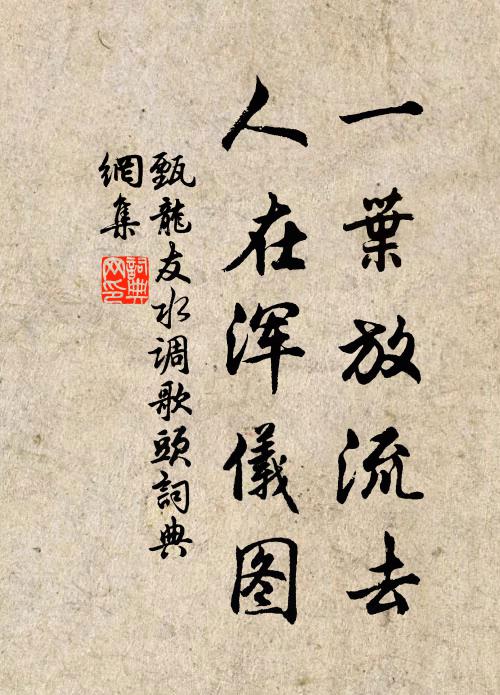 一葉放流去
人在浑儀图
甄龍友水调歌頭詞典
網集
詞典
网印